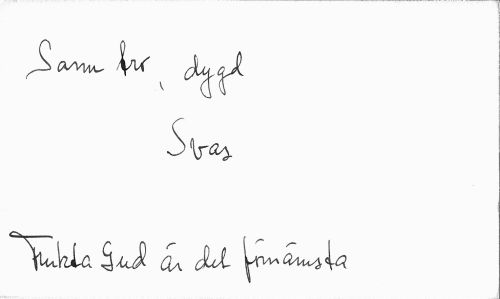 Sann tro, dygd
Svar
Frukta Gud är det förnämsta